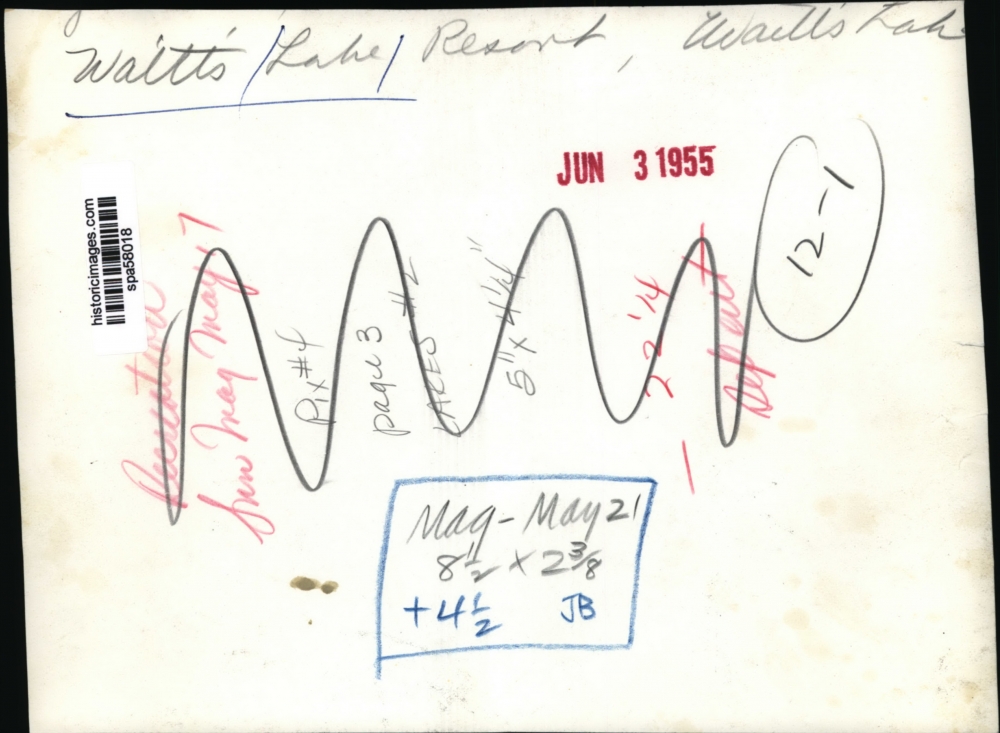 Waitts /Lake/ Resort, Waitts Lake
JUN 3 1955
12-1
historicimages.com
spa58018
Recreation
Sun Mag May 7
Pix #4
page 3
LAKES #2
5" x 4 1/4"
2 2 1/4
Mag - May 21
8 1/2 x 2 3/8
+ 4 1/2 JB